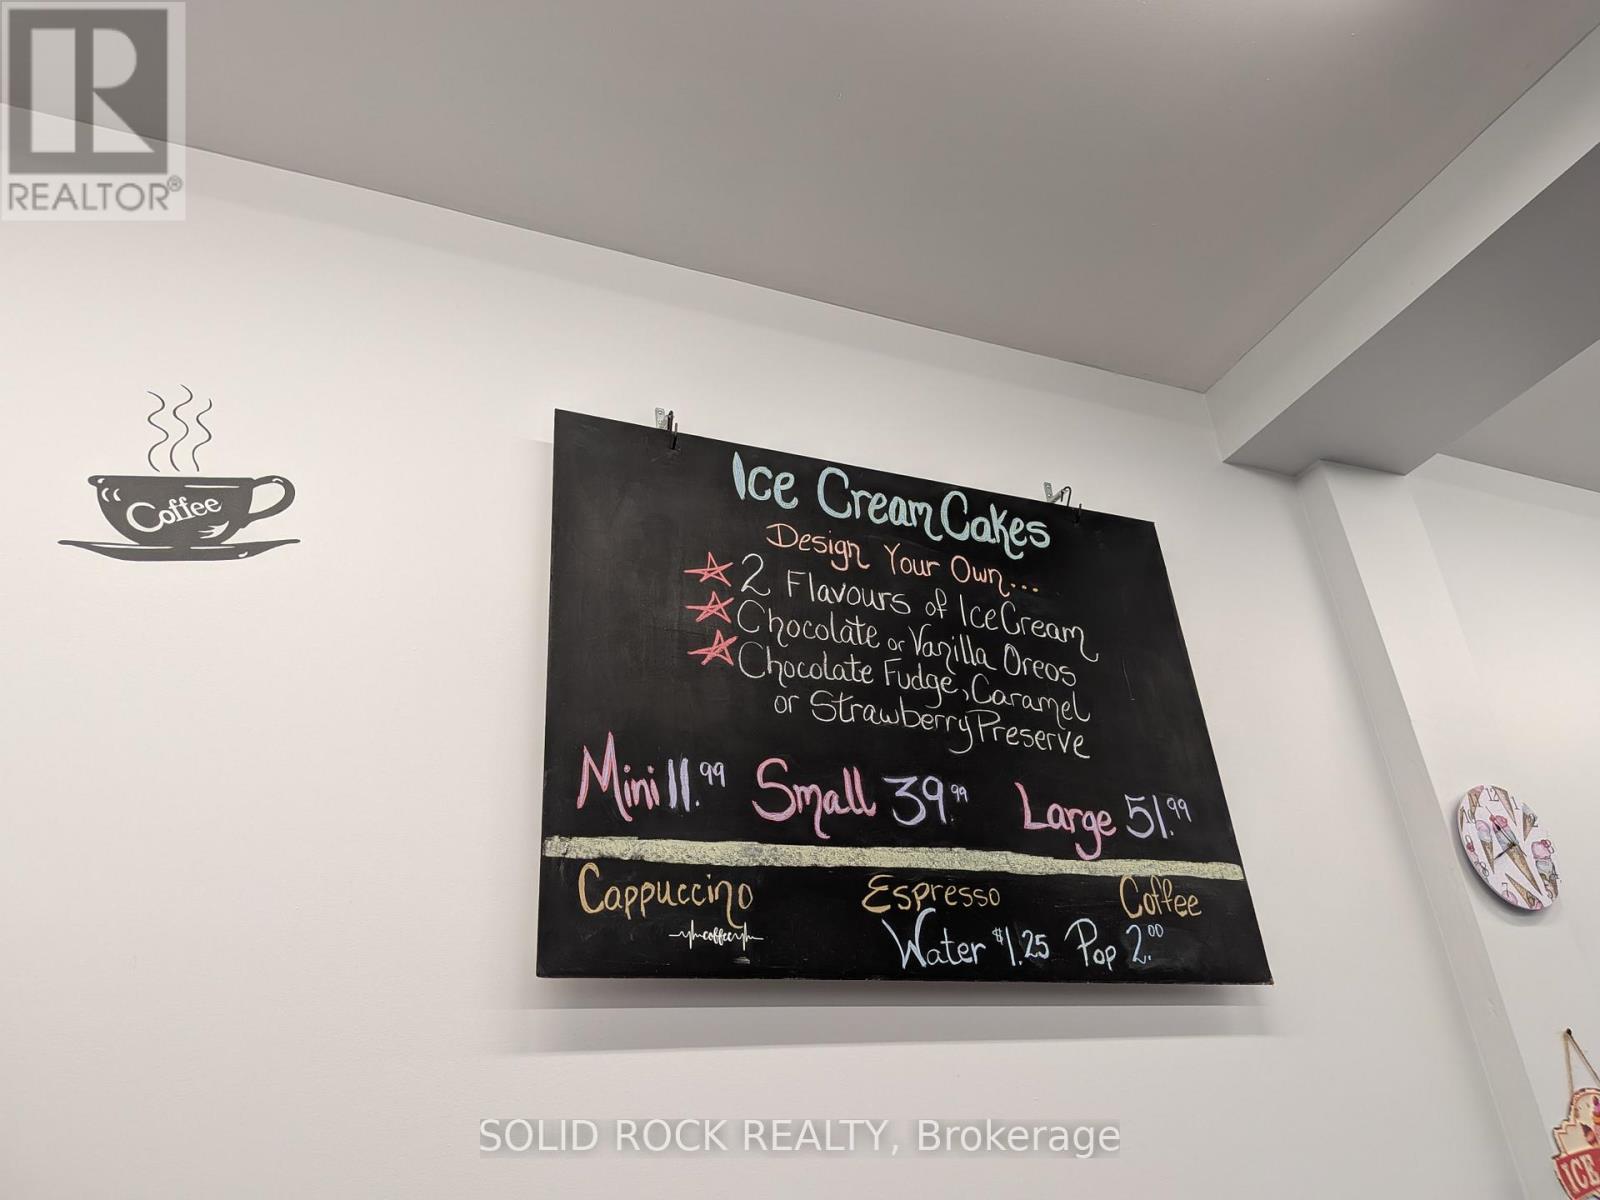 REALTOR®
Coffee
Ice Cream Cakes
Design Your Own...
2 Flavours of Ice Cream
Chocolate or Vanilla Oreos
Chocolate Fudge, Caramel
or Strawberry Preserve
Mini 11.99 Small 39.99 Large 51.99
Cappuccino Espresso Coffee
coffee
Water $1.25 Pop 2.00
ICE
SOLID ROCK REALTY, Brokerage